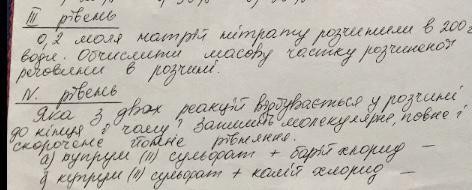 III рівень
0,2 моля натрій нітрату розчинили в 200г
води. Обчислити масову частку розчиненої
речовини в розчині.
IV. рівень
Яка з двох реакцій відбувається у розчині
до кінця і чому? Запишіть молекулярне, повне і
скорочене йонне рівняння.
а) купрум (II) сульфат + барій хлорид —
б) купрум (II) сульфат + калій хлорид —